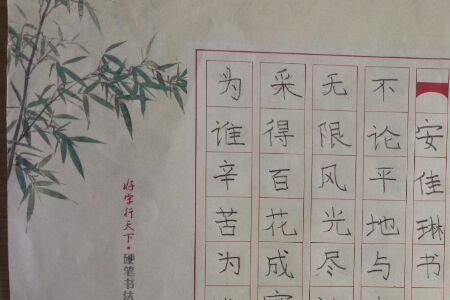 安佳琳书
不论平地与
无限风光尽
采得百花成
为谁辛苦为
好字行天下·硬笔书法